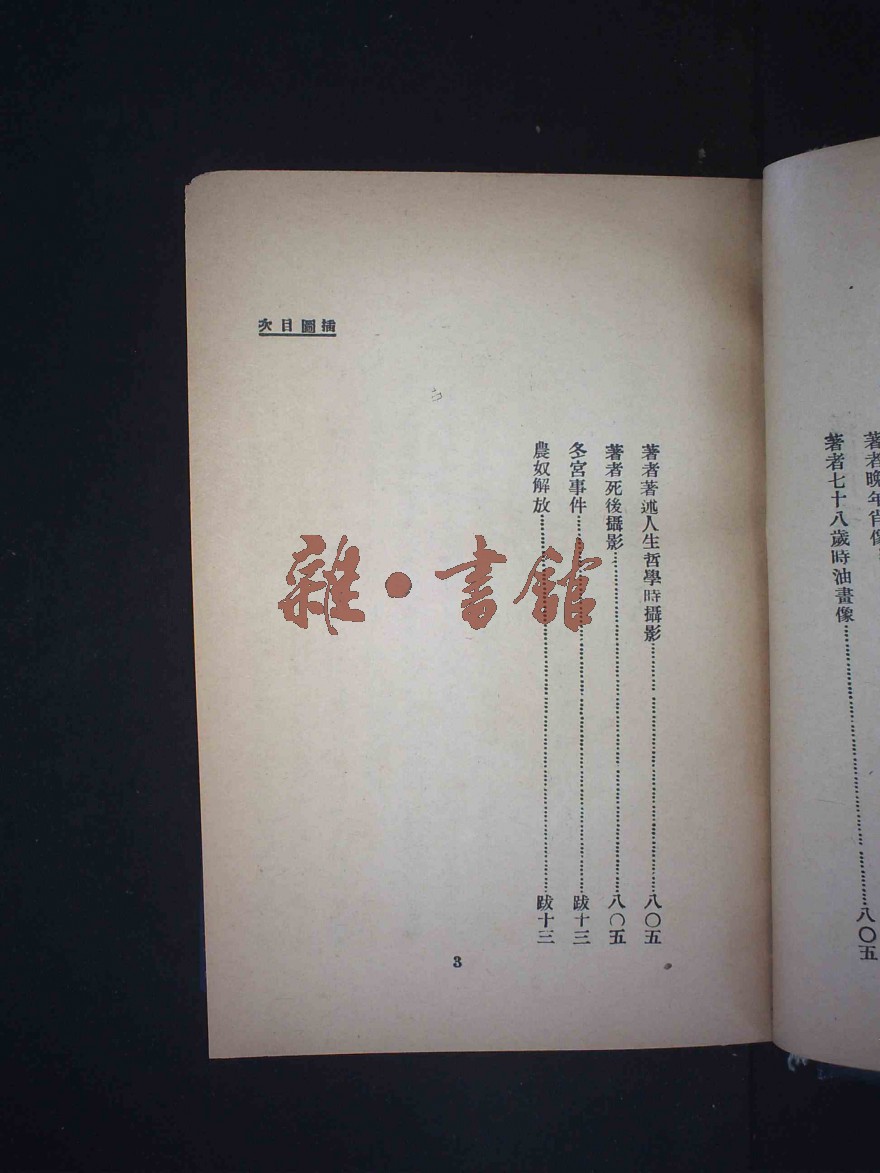 著者晚年肖像
著者七十八歲時油畫像……八〇五
插圖目次
著者著述人生哲學時攝影……八〇五
著者死後攝影……八〇五
冬宮事件……跋十三
農奴解放……跋十三
3
雜·書館